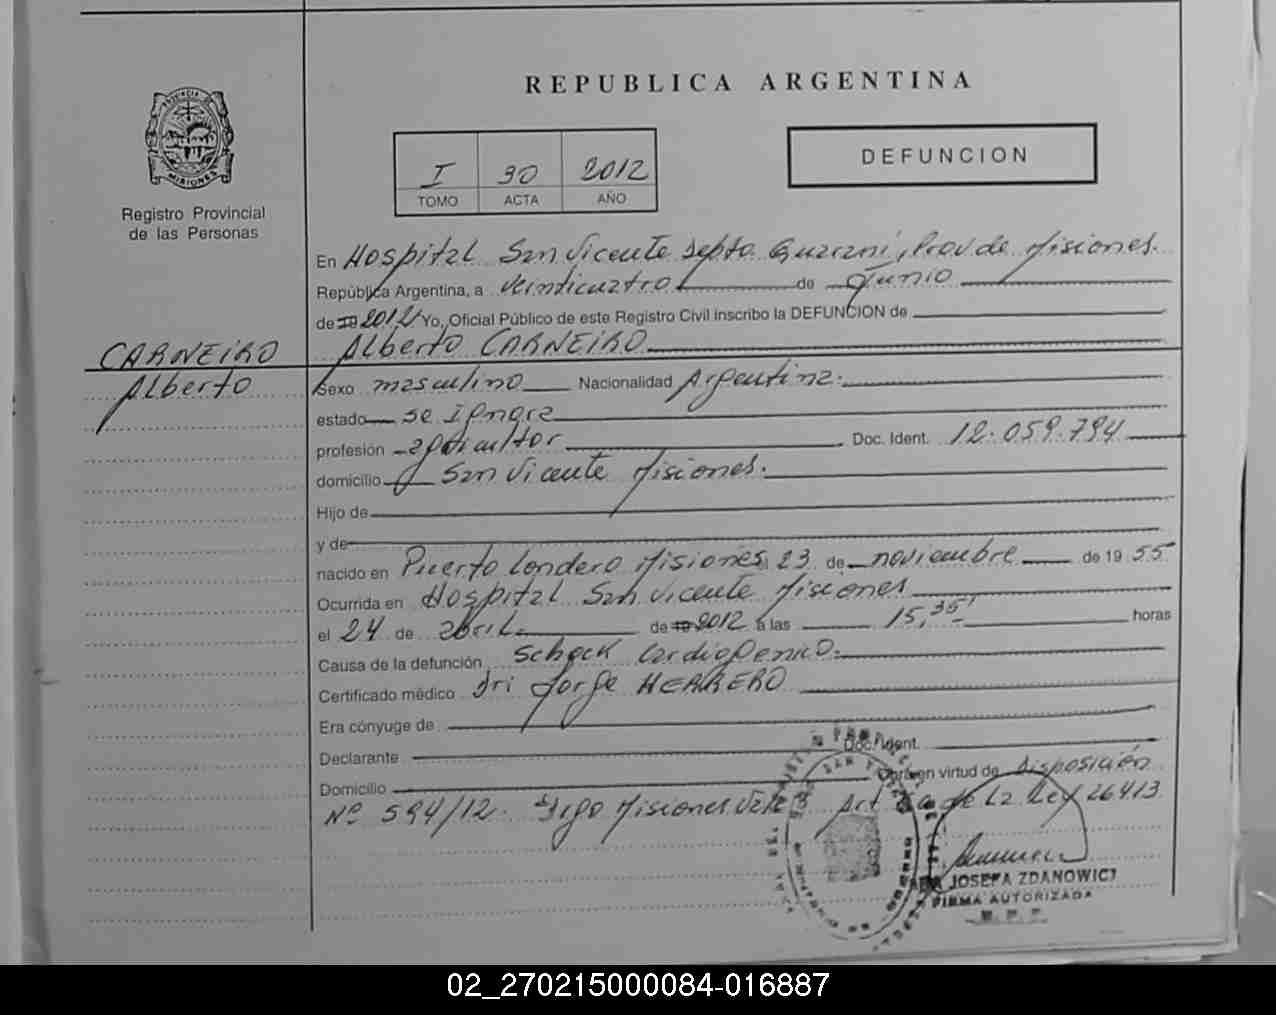 REPUBLICA ARGENTINA
PROVINCIA DE
MISIONES
Registro Provincial
de las Personas
I 30 2012
TOMO ACTA AÑO
DEFUNCION
En Hospital San Vicente Depto Guaraní, Prov de Misiones.
República Argentina, a veinticuatro de Junio
de 19 2012 Yo, Oficial Público de este Registro Civil inscribo la DEFUNCION de
CARNEIRO
Alberto
Alberto CARNEIRO
Sexo masculino Nacionalidad Argentina.
estado se Ignora
profesión agricultor Doc. Ident. 12.059.794
domicilio San Vicente Misiones.
Hijo de
y de
nacido en Puerto Londero Misiones 23 de noviembre de 19 55
Ocurrida en Hospital San Vicente Misiones
el 24 de abril de 19 2012 a las 15,35 horas
Causa de la defunción Schock Cardiogenico.
Certificado médico Dr: Jorge HERRERO
Era cónyuge de
Declarante Doc. Ident.
Domicilio Obra en virtud de Disposición
Nº 594/12. Digo Misiones Art de La Ley 26413
JOSEFA ZDANOWICZ
FIRMA AUTORIZADA
02_270215000084-016887